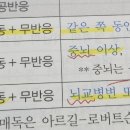 공반응
통 + 무반응
같은 쪽 동안
중뇌 이상,
** 중뇌는
통 + 무반응
뇌교병변 또
매독은 아르길-로버트